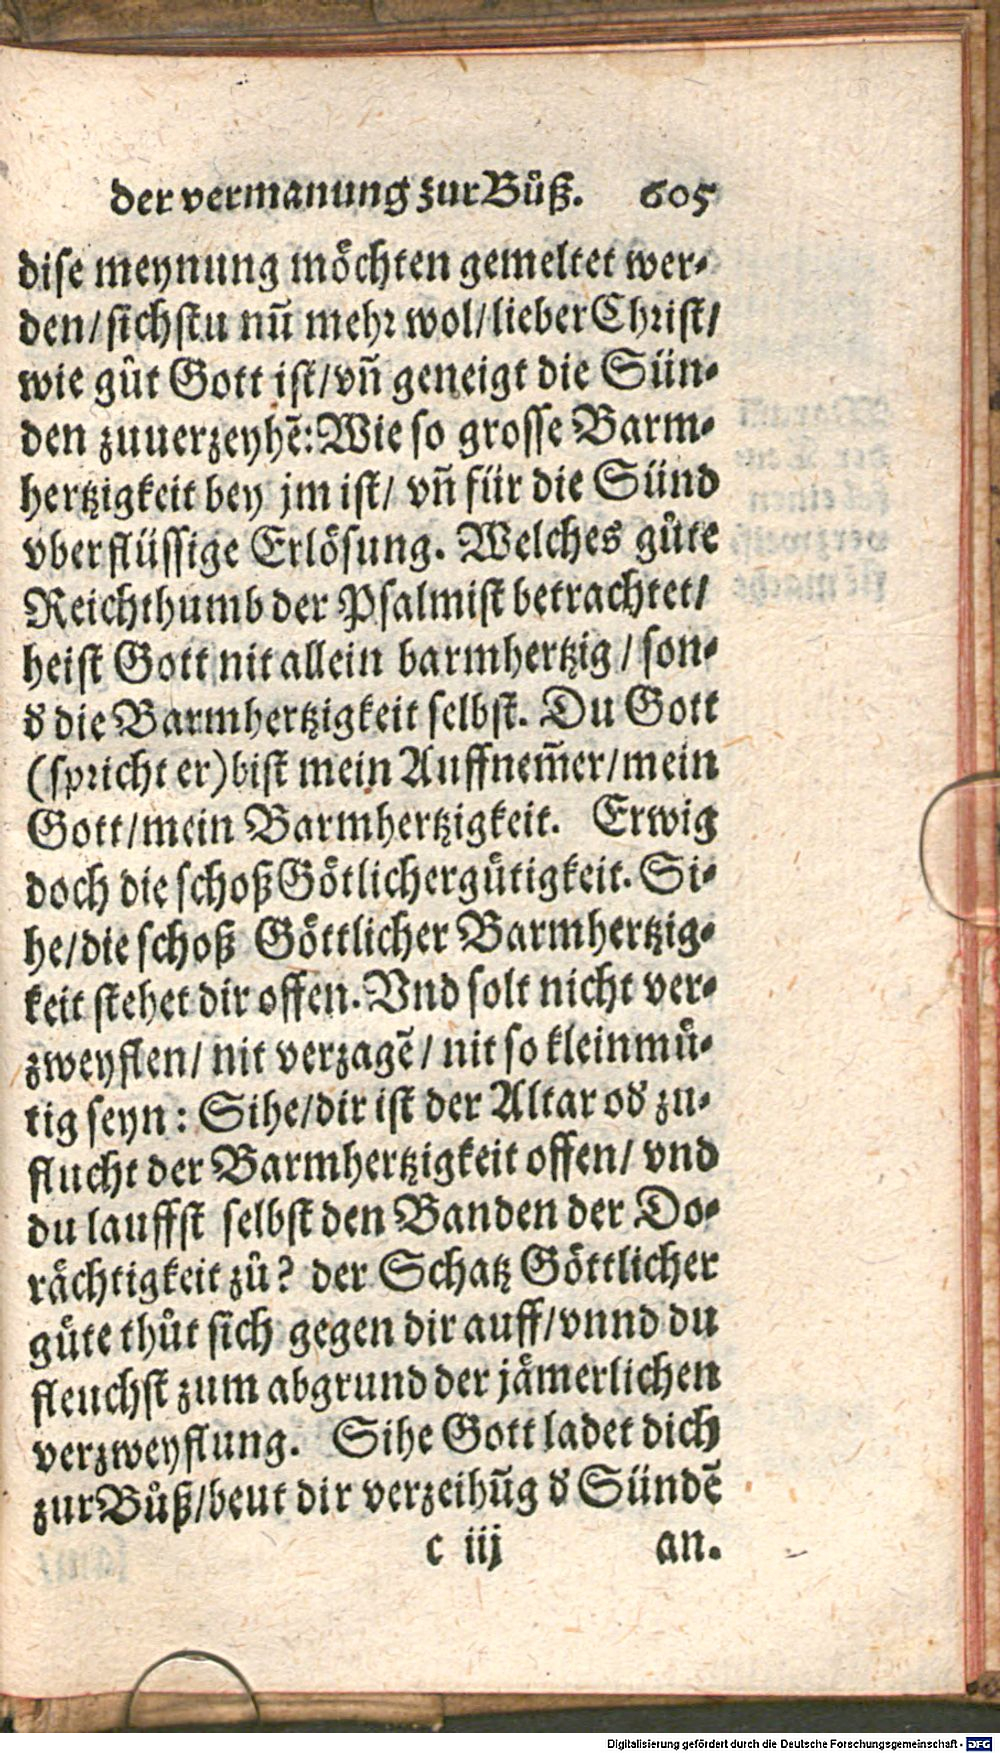 der vermanung zur Bůß. 605
dise meynung möchten gemeltet wer-
den/ sichstu nũ mehr wol/ lieber Christ/
wie gůt Gott ist/ vñ geneigt die Sün-
den zuuerzeyhẽ: Wie so grosse Barm-
hertzigkeit bey jm ist/ vñ für die Sünd
vberflüssige Erlösung. Welches gůte
Reichthumb der Psalmist betrachtet/
heist Gott nit allein barmhertzig / son-
ď die Barmhertzigkeit selbst. Du Gott
(spricht er) bist mein Auffnem̃er/ mein
Gott/ mein Barmhertzigkeit. Erwig
doch die schoß Götlicher gütigkeit. Si-
he/ die schoß Göttlicher Barmhertzig-
keit stehet dir offen. Vnd solt nicht ver-
zweyflen/ nit verzagẽ/ nit so kleinmů-
tig seyn: Sihe/ dir ist der Altar oď zu-
flucht der Barmhertzigkeit offen/ vnd
du lauffst selbst den Banden der Do-
rächtigkeit zů? der Schatz Göttlicher
güte thůt sich gegen dir auff/ vnnd du
fleuchst zum abgrund der jämerlichen
verzweyflung. Sihe Gott ladet dich
zur Bůß/ beut dir verzeihũg ď Sündẽ
c iij an.
Digitalisierung gefördert durch die Deutsche Forschungsgemeinschaft - DFG